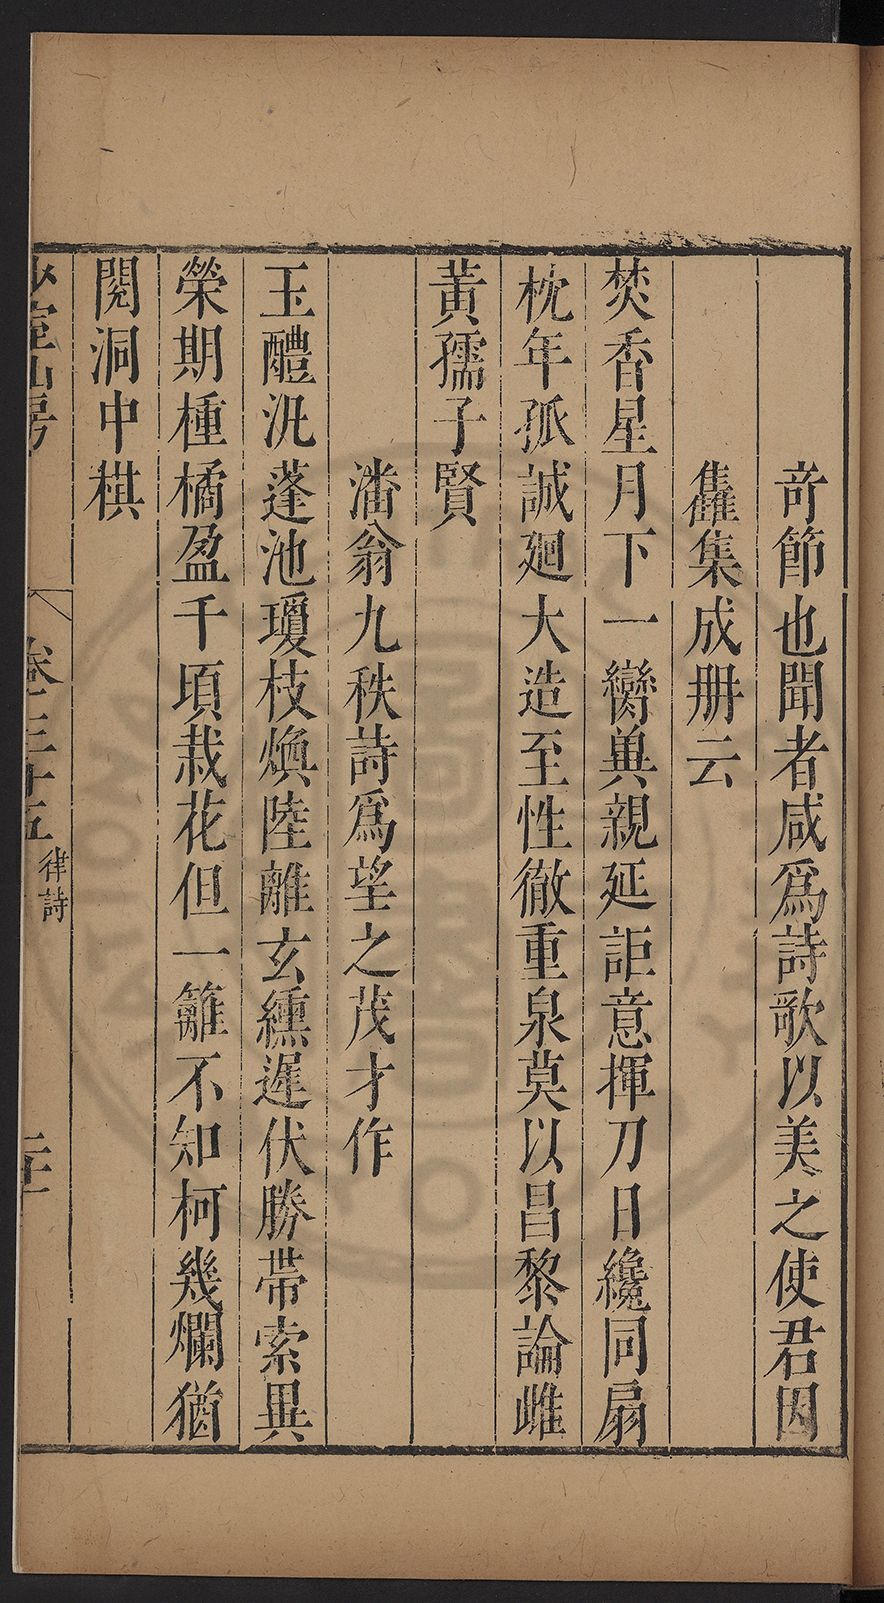 竒節也聞者咸爲詩歌以美之使君因
雧集成册云
焚香星月下一臠㒷親延詎意揮刀日纔同扇
枕年孤誠廻大造至性徹重泉莫以昌黎論雌
黃孺子賢
潘翁九秩詩爲望之茂才作
玉醴汎蓬池瓊枝煥陸離玄纁遲伏勝帶索異
榮期種橘盈千頃栽花但一籬不知柯幾爛猶
閱洞中棋
少室山房
卷三十五
律詩